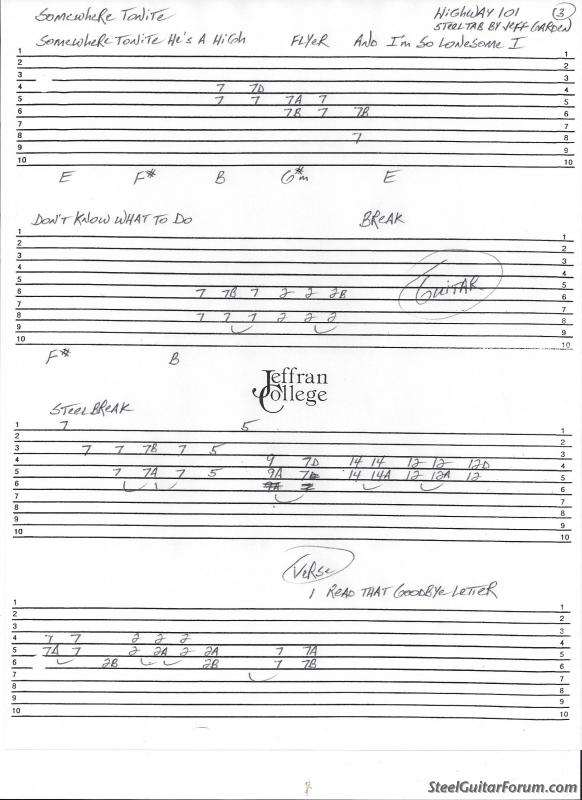 Somewhere Tonite
Highway 101 3
Steel Tab by Jeff Garden
Somewhere Tonite He's A High Flyer And I'm So Lonesome I
1 1
2 2
3 3
4 7 7D 4
5 7 7 7A 7 5
6 7B 7 7B 6
7 7
8 7 8
9 9
10 10
E F# B G#m E
Don't Know What To Do Break
1 1
2 2
3 3
4 4
5 5
6 7 7B 7 2 2 2B 6
Guitar
7 7
8 7 7 7 2 2 2 8
9 9
10 10
F# B
Jeffran College
Steel Break
1 7 5 1
2 2
3 7 7 7B 7 5 3
4 9 7D 14 14 12 12 12D 4
5 7 7A 7 5 9A 7 14 14A 12 12A 12 5
6 6
7 7
8 8
9 9
10 10
Verse
I Read That Goodbye Letter
1 1
2 2
3 3
4 7 7 2 2 2 4
5 7A 7 2 2A 2 2A 7 7A 5
6 2B 2B 7 7B 6
7 7
8 8
9 9
10 10
SteelGuitarForum.com